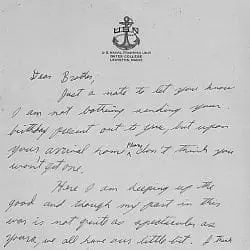 USN
U.S. NAVAL TRAINING UNIT
BATES COLLEGE
LEWISTON, MAINE
Dear Brother,
Just a note to let you know
I am not bothering sending your
birthday present out to you, but upon
your arrival home. Mary, don't think you
won't get one.
Here I am keeping up the
good and though my part in this
war is not quite as spectacular as
yours, we all have our little bit. I think